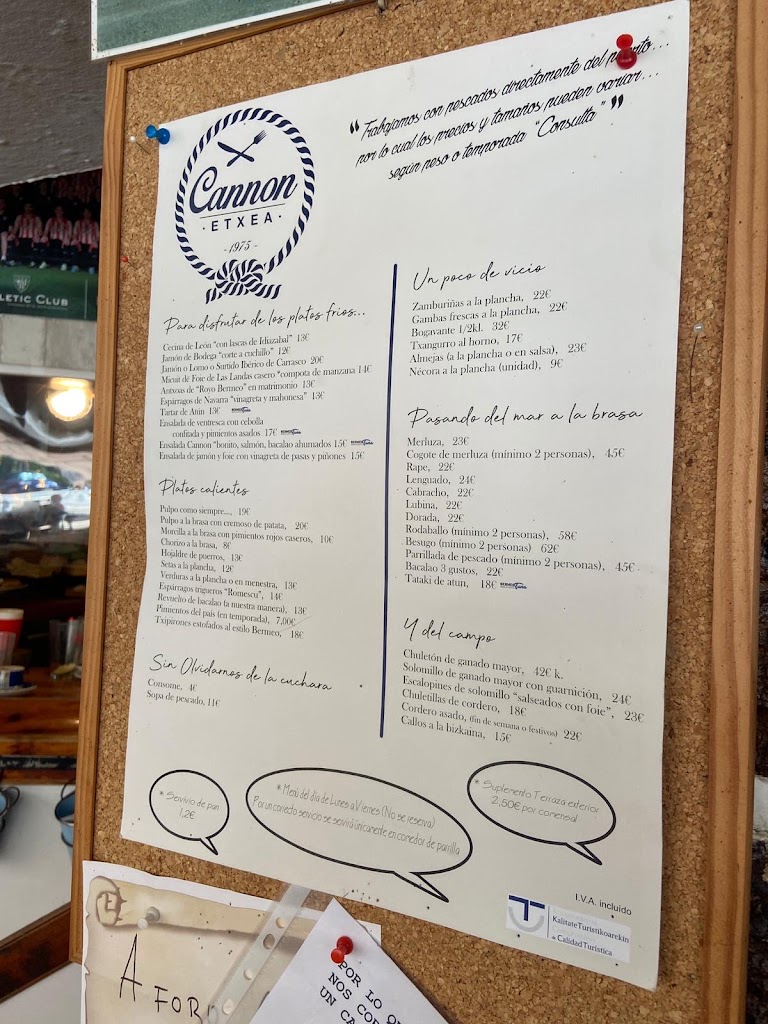 “Trabajamos con pescados directamente del puerto...
por lo cual los precios y tamaños pueden variar...
según peso o temporada “Consulta””
Cannon
ETXEA
-1975-
LETIC CLUB
Para disfrutar de los platos frios...
Cecina de León “con lascas de Idiazabal” 13€
Jamón de Bodega “corte a cuchillo” 12€
Jamón o Lomo o Surtido Ibérico de Carrasco 20€
Micuit de Foie de Las Landas casero “compota de manzana 14€
Antxoas de “Royo Bermeo” en matrimonio 13€
Espárragos de Navarra “vinagreta y mahonesa” 13€
Tartar de Atún 13€
Ensalada de ventresca con cebolla
confitada y pimientos asados 17€
Ensalada Cannon “bonito, salmón, bacalao ahumados 15€
Ensalada de jamón y foie con vinagreta de pasas y piñones 15€
Platos calientes
Pulpo como siempre..., 19€
Pulpo a la brasa con cremoso de patata, 20€
Morcilla a la brasa con pimientos rojos caseros, 10€
Chorizo a la brasa, 8€
Hojaldre de puerros, 13€
Setas a la plancha, 12€
Verduras a la plancha o en menestra, 13€
Espárragos trigueros “Romescu”, 14€
Revuelto de bacalao (a nuestra manera), 13€
Pimientos del país (en temporada), 7,00€
Txipirones estofados al estilo Bermeo, 18€
Sin Olvidarnos de la cuchara
Consome, 4€
Sopa de pescado, 11€
Un poco de vicio
Zamburiñas a la plancha, 22€
Gambas frescas a la plancha, 22€
Bogavante 1/2kl. 32€
Txangurro al horno, 17€
Almejas (a la plancha o en salsa), 23€
Nécora a la plancha (unidad), 9€
Pasando del mar a la brasa
Merluza, 23€
Cogote de merluza (mínimo 2 personas), 45€
Rape, 22€
Lenguado, 24€
Cabracho, 22€
Lubina, 22€
Dorada, 22€
Rodaballo (mínimo 2 personas), 58€
Besugo (mínimo 2 personas) 62€
Parrillada de pescado (mínimo 2 personas), 45€
Bacalao 3 gustos, 22€
Tataki de atun, 18€
Y del campo
Chuletón de ganado mayor, 42€ k.
Solomillo de ganado mayor con guarnición, 24€
Escalopines de solomillo “salseados con foie”, 23€
Chuletillas de cordero, 18€
Cordero asado, (fin de semana o festivos) 22€
Callos a la bizkaina, 15€
* Servivio de pan
1,2€
* Menú del día de Lunes a Viernes (No se reserva)
Por un correcto servicio se servirá únicamente en comedor de parrilla
* Suplemento Terraza exterior
2,50€ por comensal
I.V.A. incluido
Kalitate Turistikoarekin
Calidad Turística
AFOR
POR LO
NOS
UN